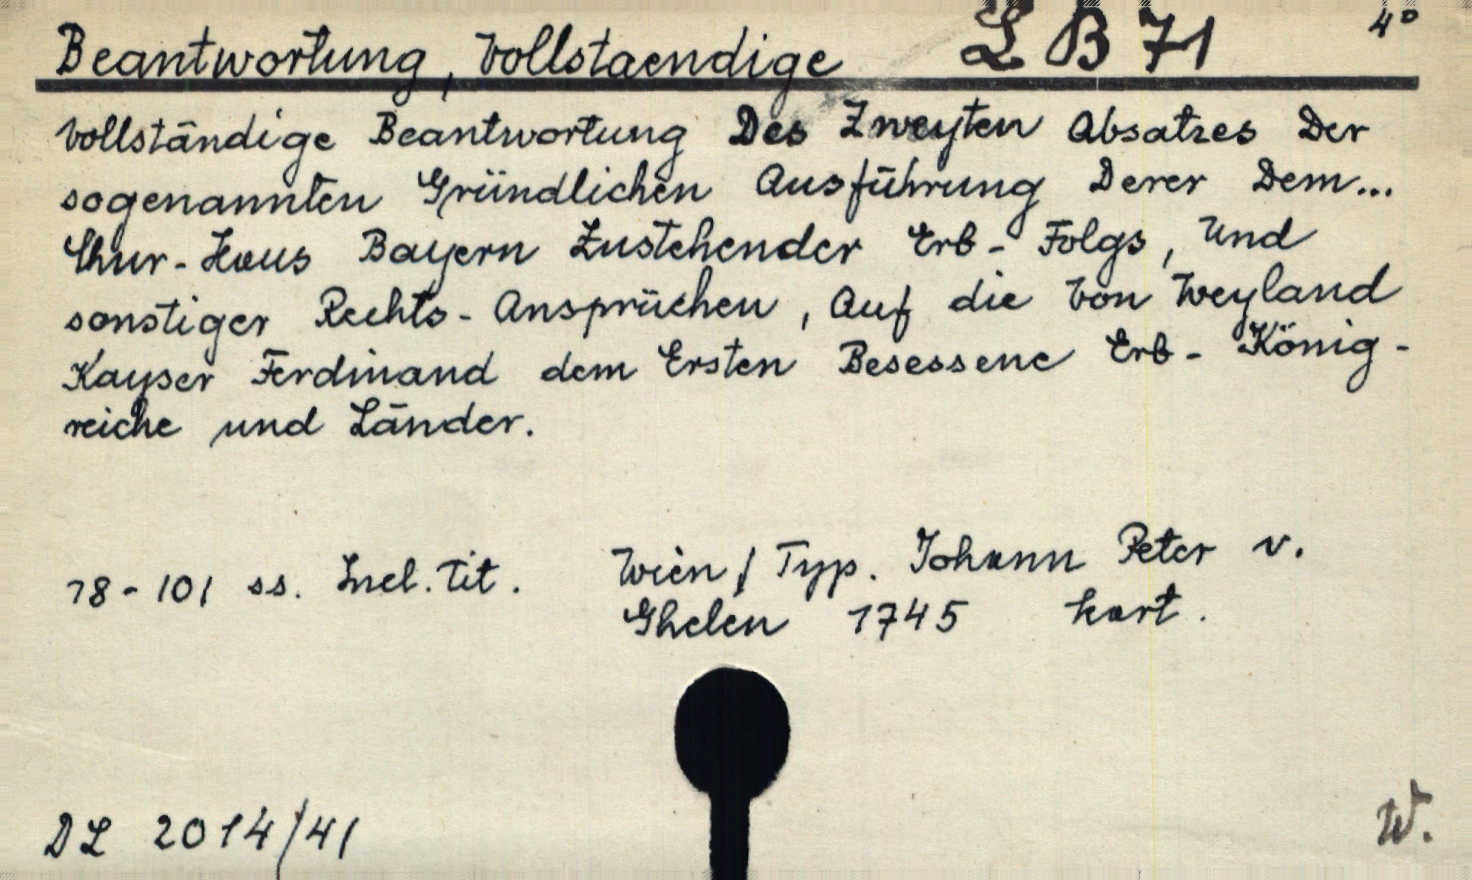 Beantwortung, Vollstaendige LB 71 4°
Vollständige Beantwortung Des Zweyten Absatzes Der
sogenannten Gründlichen Ausführung Derer Dem...
Chur-Haus Bayern Zustehender Erb-Folgs, Und
sonstiger Rechts-Ansprüchen, Auf die Von Weyland
Kayser Ferdinand dem Ersten Besessene Erb-König-
reiche und Länder.
78-101 ss. Incl. Tit. Wien, Typ. Johann Peter v.
Ghelen 1745 kart.
DL 2014/41 W.